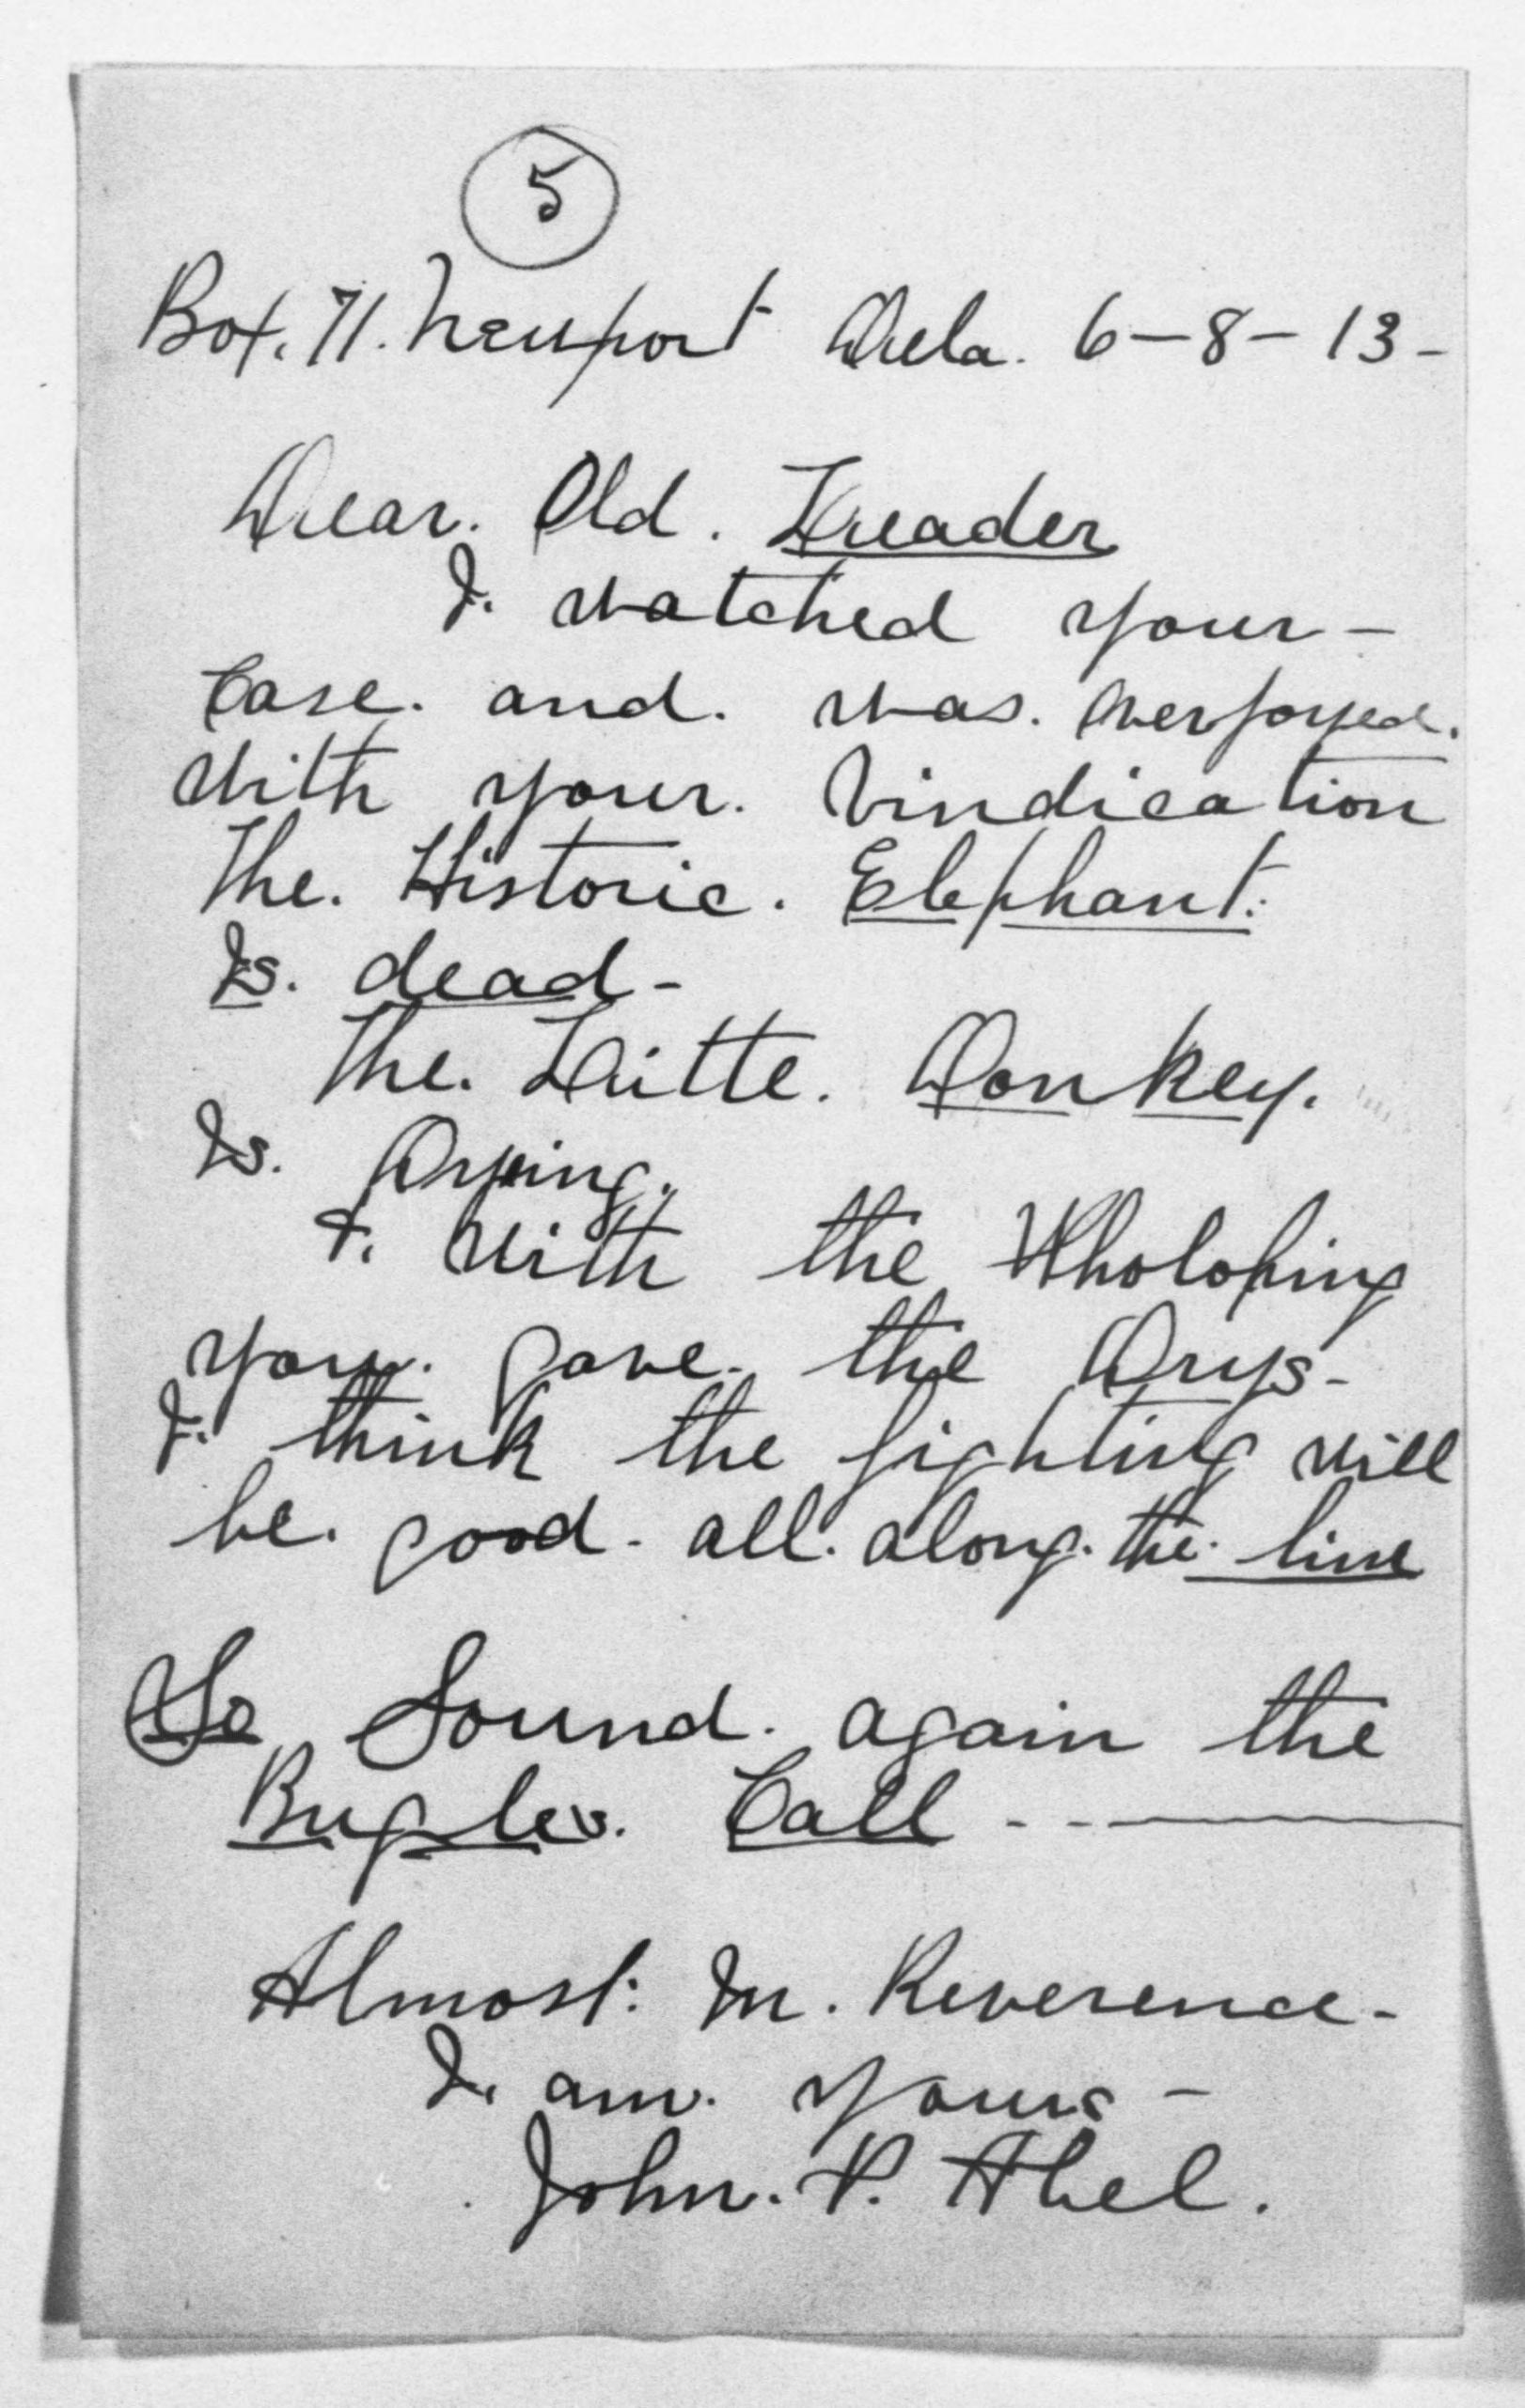 5
Box. 71. Newport Dela. 6-8-13-
Dear. Old. Leader
I. watched your-
Case. and. was. Overjoyed.
With your. Vindication
The. Historic. Elephant.
Is. dead-
The. Litte. Donkey.
Is. Dying.
&. With the Wholoping
you. gave. the Drys-
I. think the fighting will
be. good. all. along. the. line
So Sound. again the
Bugles. Call - - —
Almost. In. Reverence-
I. am. Yours-
John. P. Abel.